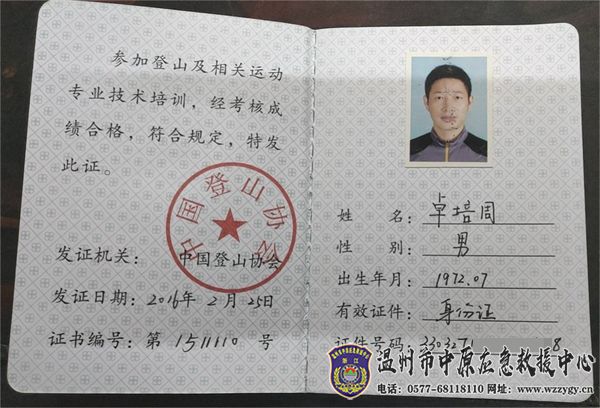 参加登山及相关运动
专业技术培训，经考核成
绩合格，符合规定，特发
此证。
发证机关：中国登山协会
发证日期：2016年2月25日
证书编号：第1511110号
中国登山协会
姓名：卓培周
性别：男
出生年月：1972.07
有效证件：身份证
证件号码：3303271 8
温州市中原应急救援中心
电话：0577-68118110 网址：www.wzzygy.cn